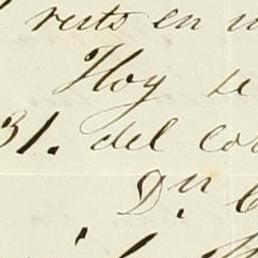 resto en u
Hoy se
31. del co
Dn